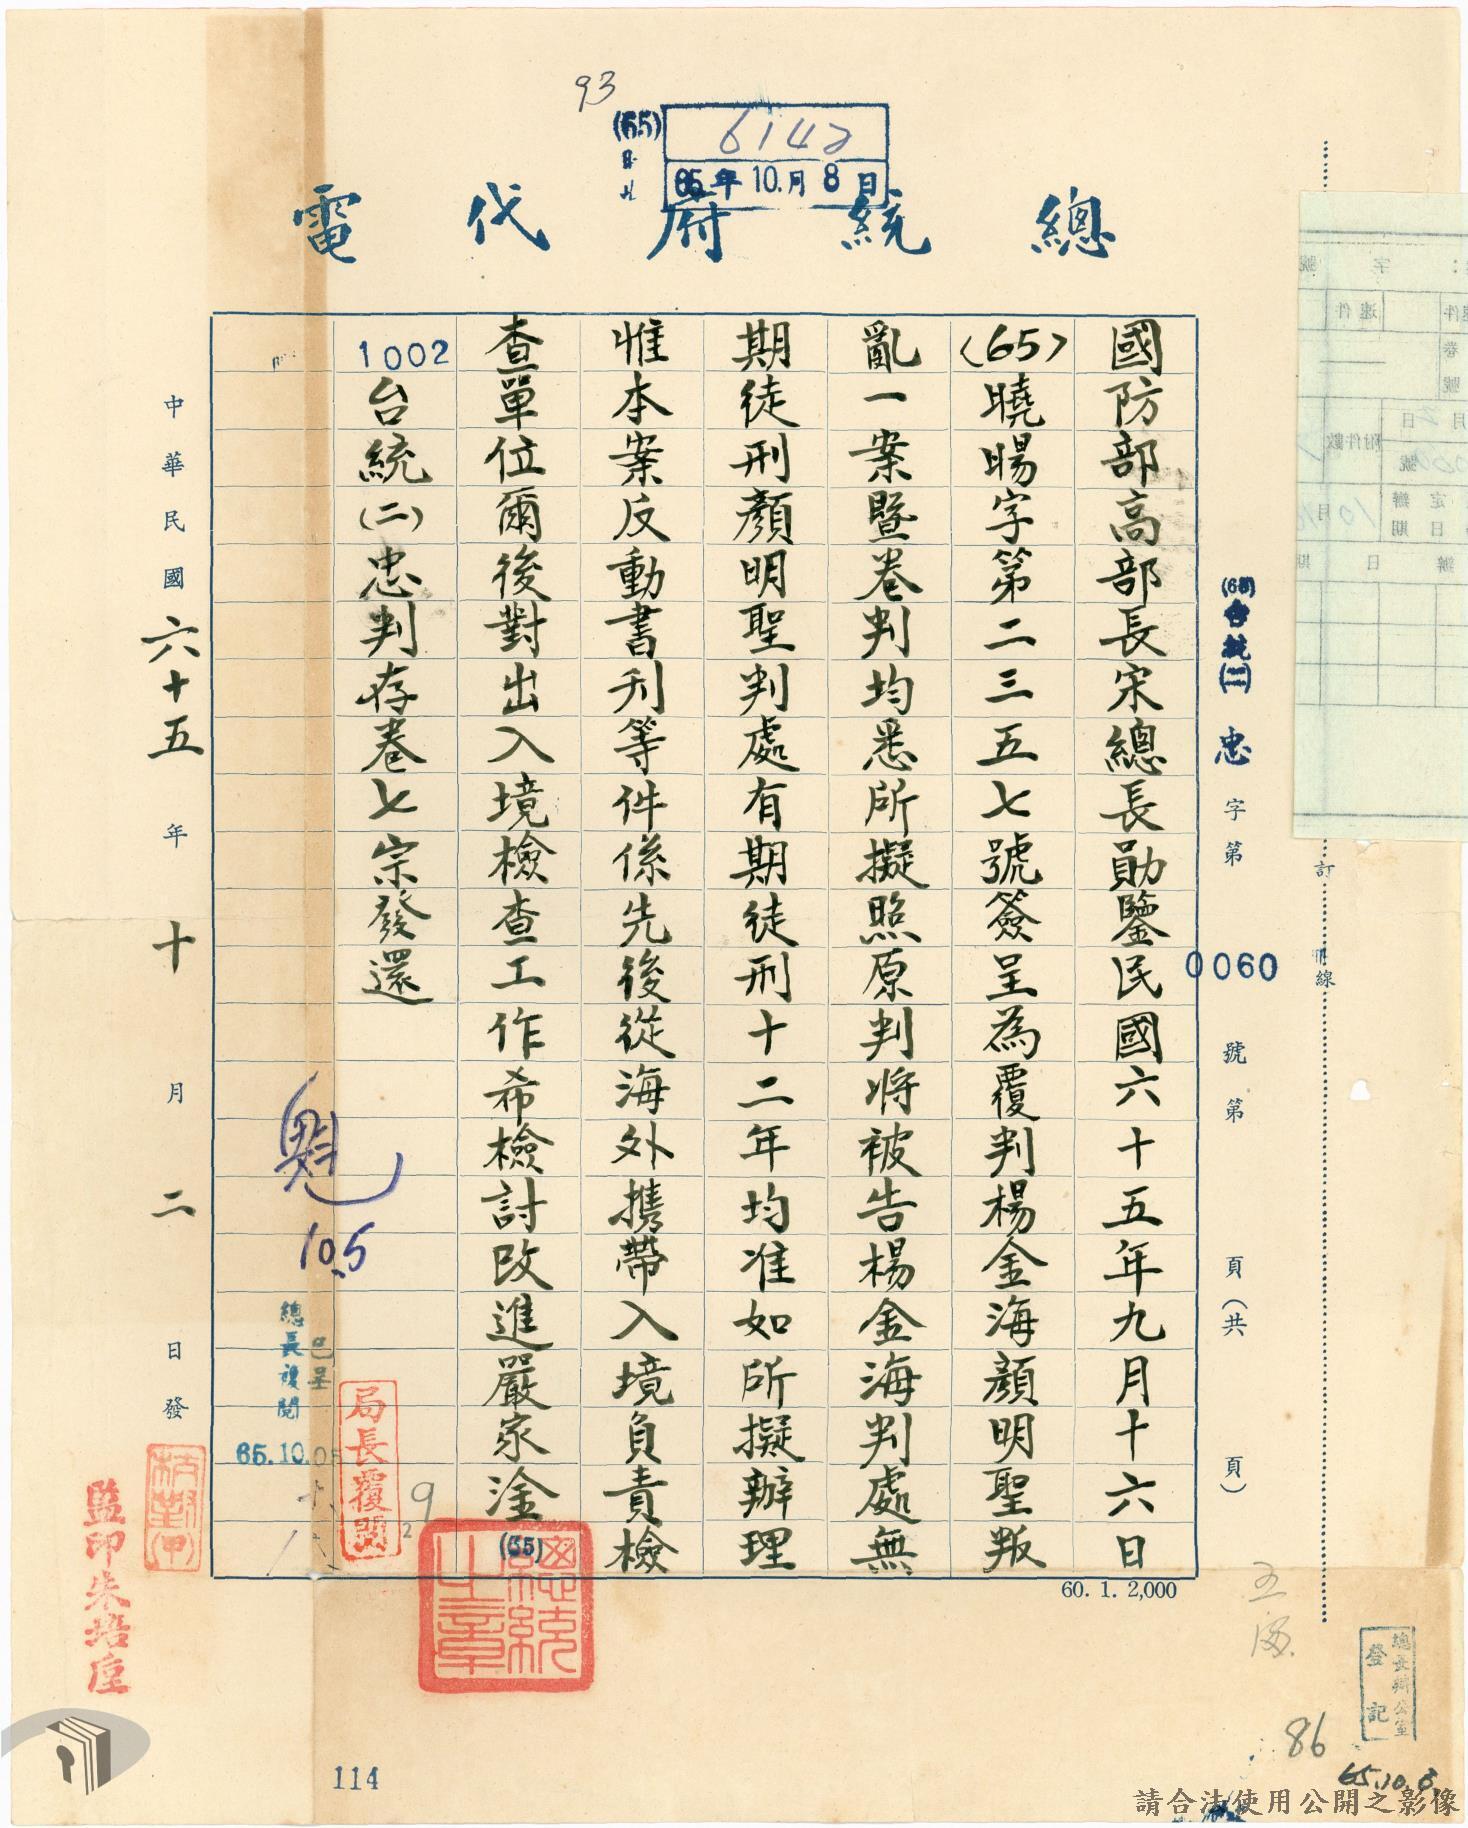 93
(65)
6142
65年10.月8日
總統府代電
(65)台統(二)忠字第0060號第頁(共頁)
訂線
國防部高部長宋總長勛鑒民國六十五年九月十六日
(65)曉暘字第二三五七號簽呈為覆判楊金海顏明聖叛
亂一案暨卷判均悉所擬照原判將被告楊金海判處無
期徒刑顏明聖判處有期徒刑十二年均准如所擬辦理
惟本案反動書刋等件係先後從海外攜帶入境負責檢
查單位爾後對出入境檢查工作希檢討改進嚴家淦(65)
1002台統(二)忠判存卷七宗發還
魁
10.5
已呈
總長複閱
65.10.05
局長覆閱
29
總統之章
中華民國六十五年十月二日發
監印朱培垕
60. 1. 2,000
總長辦公室
登記
86
65.10.8
114
請合法使用公開之影像